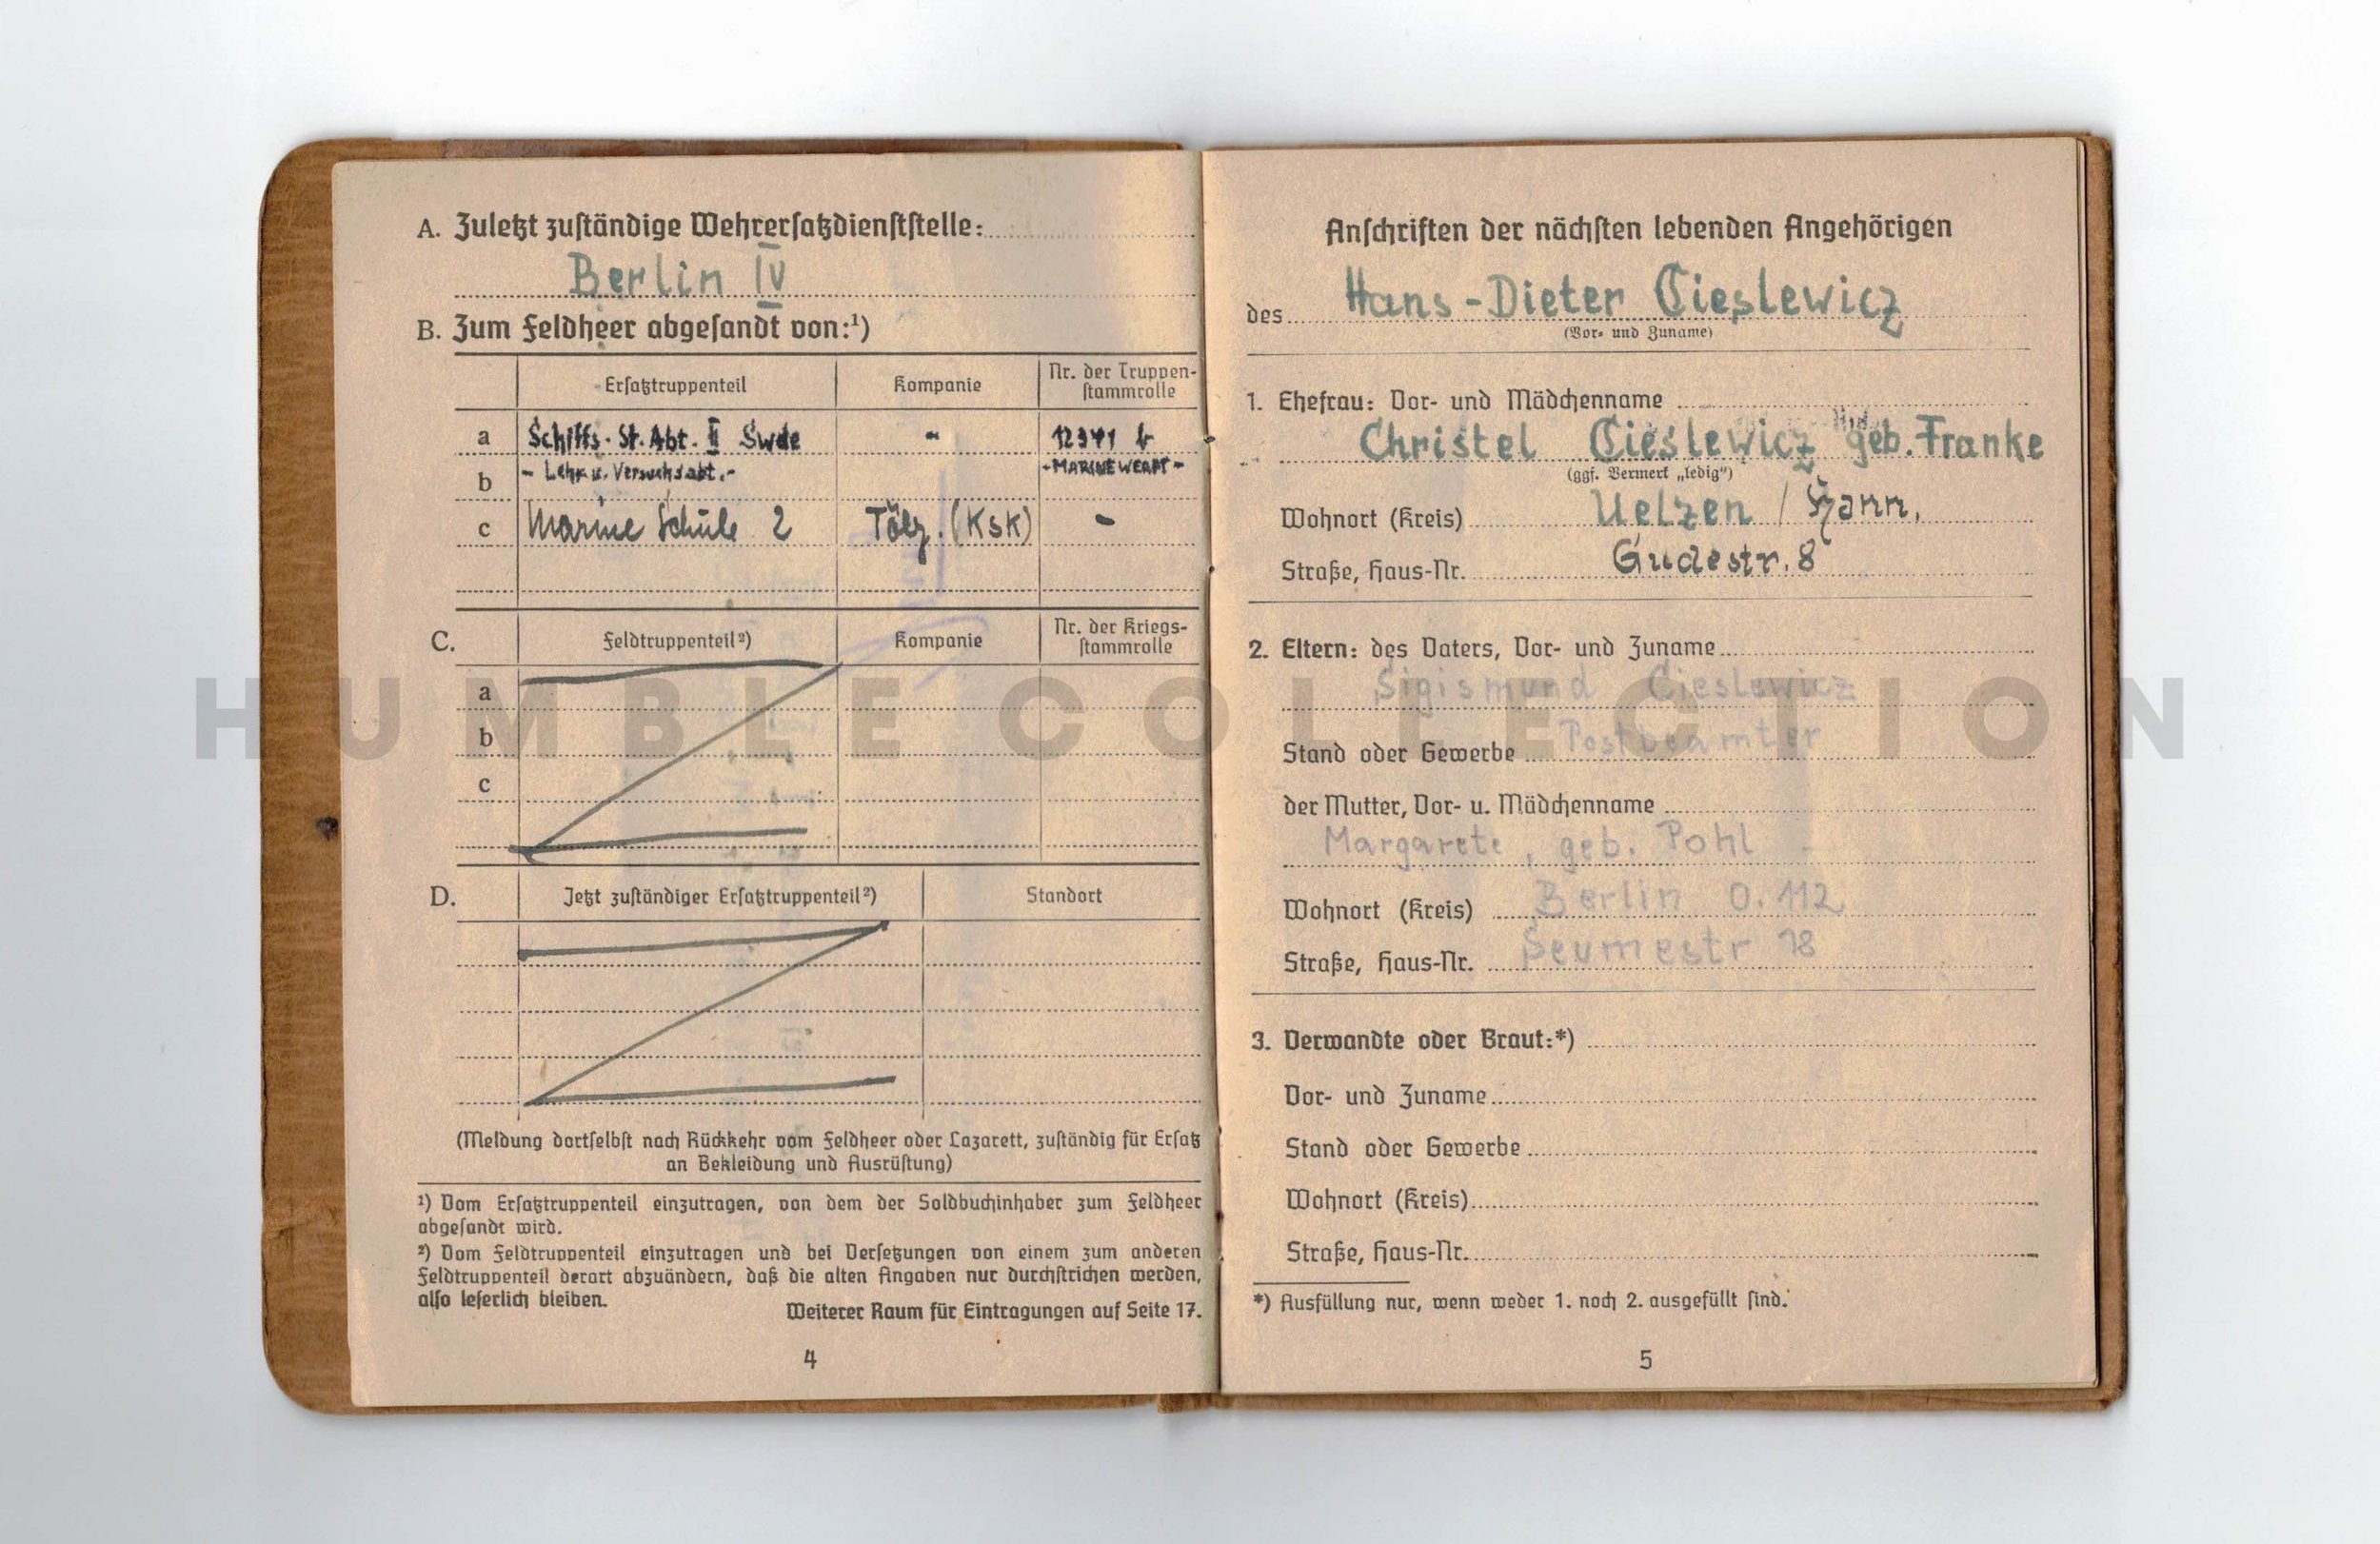 A. Zuletzt zuständige Wehrersatzdienststelle:
Berlin IV
B. Zum Feldheer abgesandt von:¹)
Ersatztruppenteil Kompanie Nr. der Truppen-
stammrolle
a Schiffs-St. Abt. II Swde - 12341
b - Lehr u. Versuchsabt. -
c Marine Schule 2 Tölz. (KSK) -
C. Feldtruppenteil²) Kompanie Nr. der Kriegs-
stammrolle
a
b
c
D. Jetzt zuständiger Ersatztruppenteil²) Standort
(Meldung dortselbst nach Rückkehr vom Feldheer oder Lazarett, zuständig für Ersatz
an Bekleidung und Ausrüstung)
¹) Vom Ersatztruppenteil einzutragen, von dem der Soldbuchinhaber zum Feldheer
abgesandt wird.
²) Vom Feldtruppenteil einzutragen und bei Versetzungen von einem zum anderen
Feldtruppenteil derart abzuändern, daß die alten Angaben nur durchstrichen werden,
also leserlich bleiben.
Weiterer Raum für Eintragungen auf Seite 17.
4
Anschriften der nächsten lebenden Angehörigen
des Hans-Dieter Cieslewicz
(Vor- und Zuname)
1. Ehefrau: Vor- und Mädchenname
Christel Cieslewicz geb. Franke
(ggf. Vermerk „ledig“)
Wohnort (Kreis) Uelzen / Hann.
Straße, Haus-Nr. Gudestr. 8
2. Eltern: des Vaters, Vor- und Zuname
Sigismund Cieslewicz
Stand oder Gewerbe Postbeamter
der Mutter, Vor- u. Mädchenname
Margarete, geb. Pohl
Wohnort (Kreis) Berlin O. 112
Straße, Haus-Nr. Seumestr 18
3. Verwandte oder Braut:*)
Vor- und Zuname
Stand oder Gewerbe
Wohnort (Kreis)
Straße, Haus-Nr.
*) Ausfüllung nur, wenn weder 1. noch 2. ausgefüllt sind.
5
HUMBLE COLLECTION